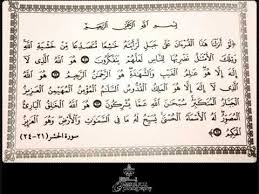 بِسْمِ اللَّهِ الرَّحْمَٰنِ الرَّحِيمِ
﴿لَوْ أَنزَلْنَا هَٰذَا الْقُرْءَانَ عَلَىٰ جَبَلٍ لَّرَأَيْتَهُ خَٰشِعًا مُّتَصَدِّعًا مِّنْ خَشْيَةِ اللَّهِ
وَتِلْكَ الْأَمْثَٰلُ نَضْرِبُهَا لِلنَّاسِ لَعَلَّهُمْ يَتَفَكَّرُونَ ۝ هُوَ اللَّهُ الَّذِي لَا
إِلَٰهَ إِلَّا هُوَ عَٰلِمُ الْغَيْبِ وَالشَّهَٰدَةِ هُوَ الرَّحْمَٰنُ الرَّحِيمُ ۝ هُوَ اللَّهُ الَّذِي
لَا إِلَٰهَ إِلَّا هُوَ الْمَلِكُ الْقُدُّوسُ السَّلَٰمُ الْمُؤْمِنُ الْمُهَيْمِنُ الْعَزِيزُ
الْجَبَّارُ الْمُتَكَبِّرُ سُبْحَٰنَ اللَّهِ عَمَّا يُشْرِكُونَ ۝ هُوَ اللَّهُ الْخَٰلِقُ الْبَارِئُ
الْمُصَوِّرُ لَهُ الْأَسْمَاءُ الْحُسْنَىٰ يُسَبِّحُ لَهُ مَا فِي السَّمَٰوَٰتِ وَالْأَرْضِ وَهُوَ الْعَزِيزُ
الْحَكِيمُ﴾ سورة الحشر (٢١-٢٤)